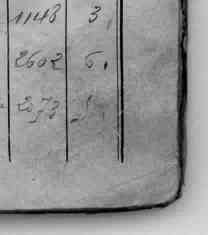 1148 3,
2602 6,
2073